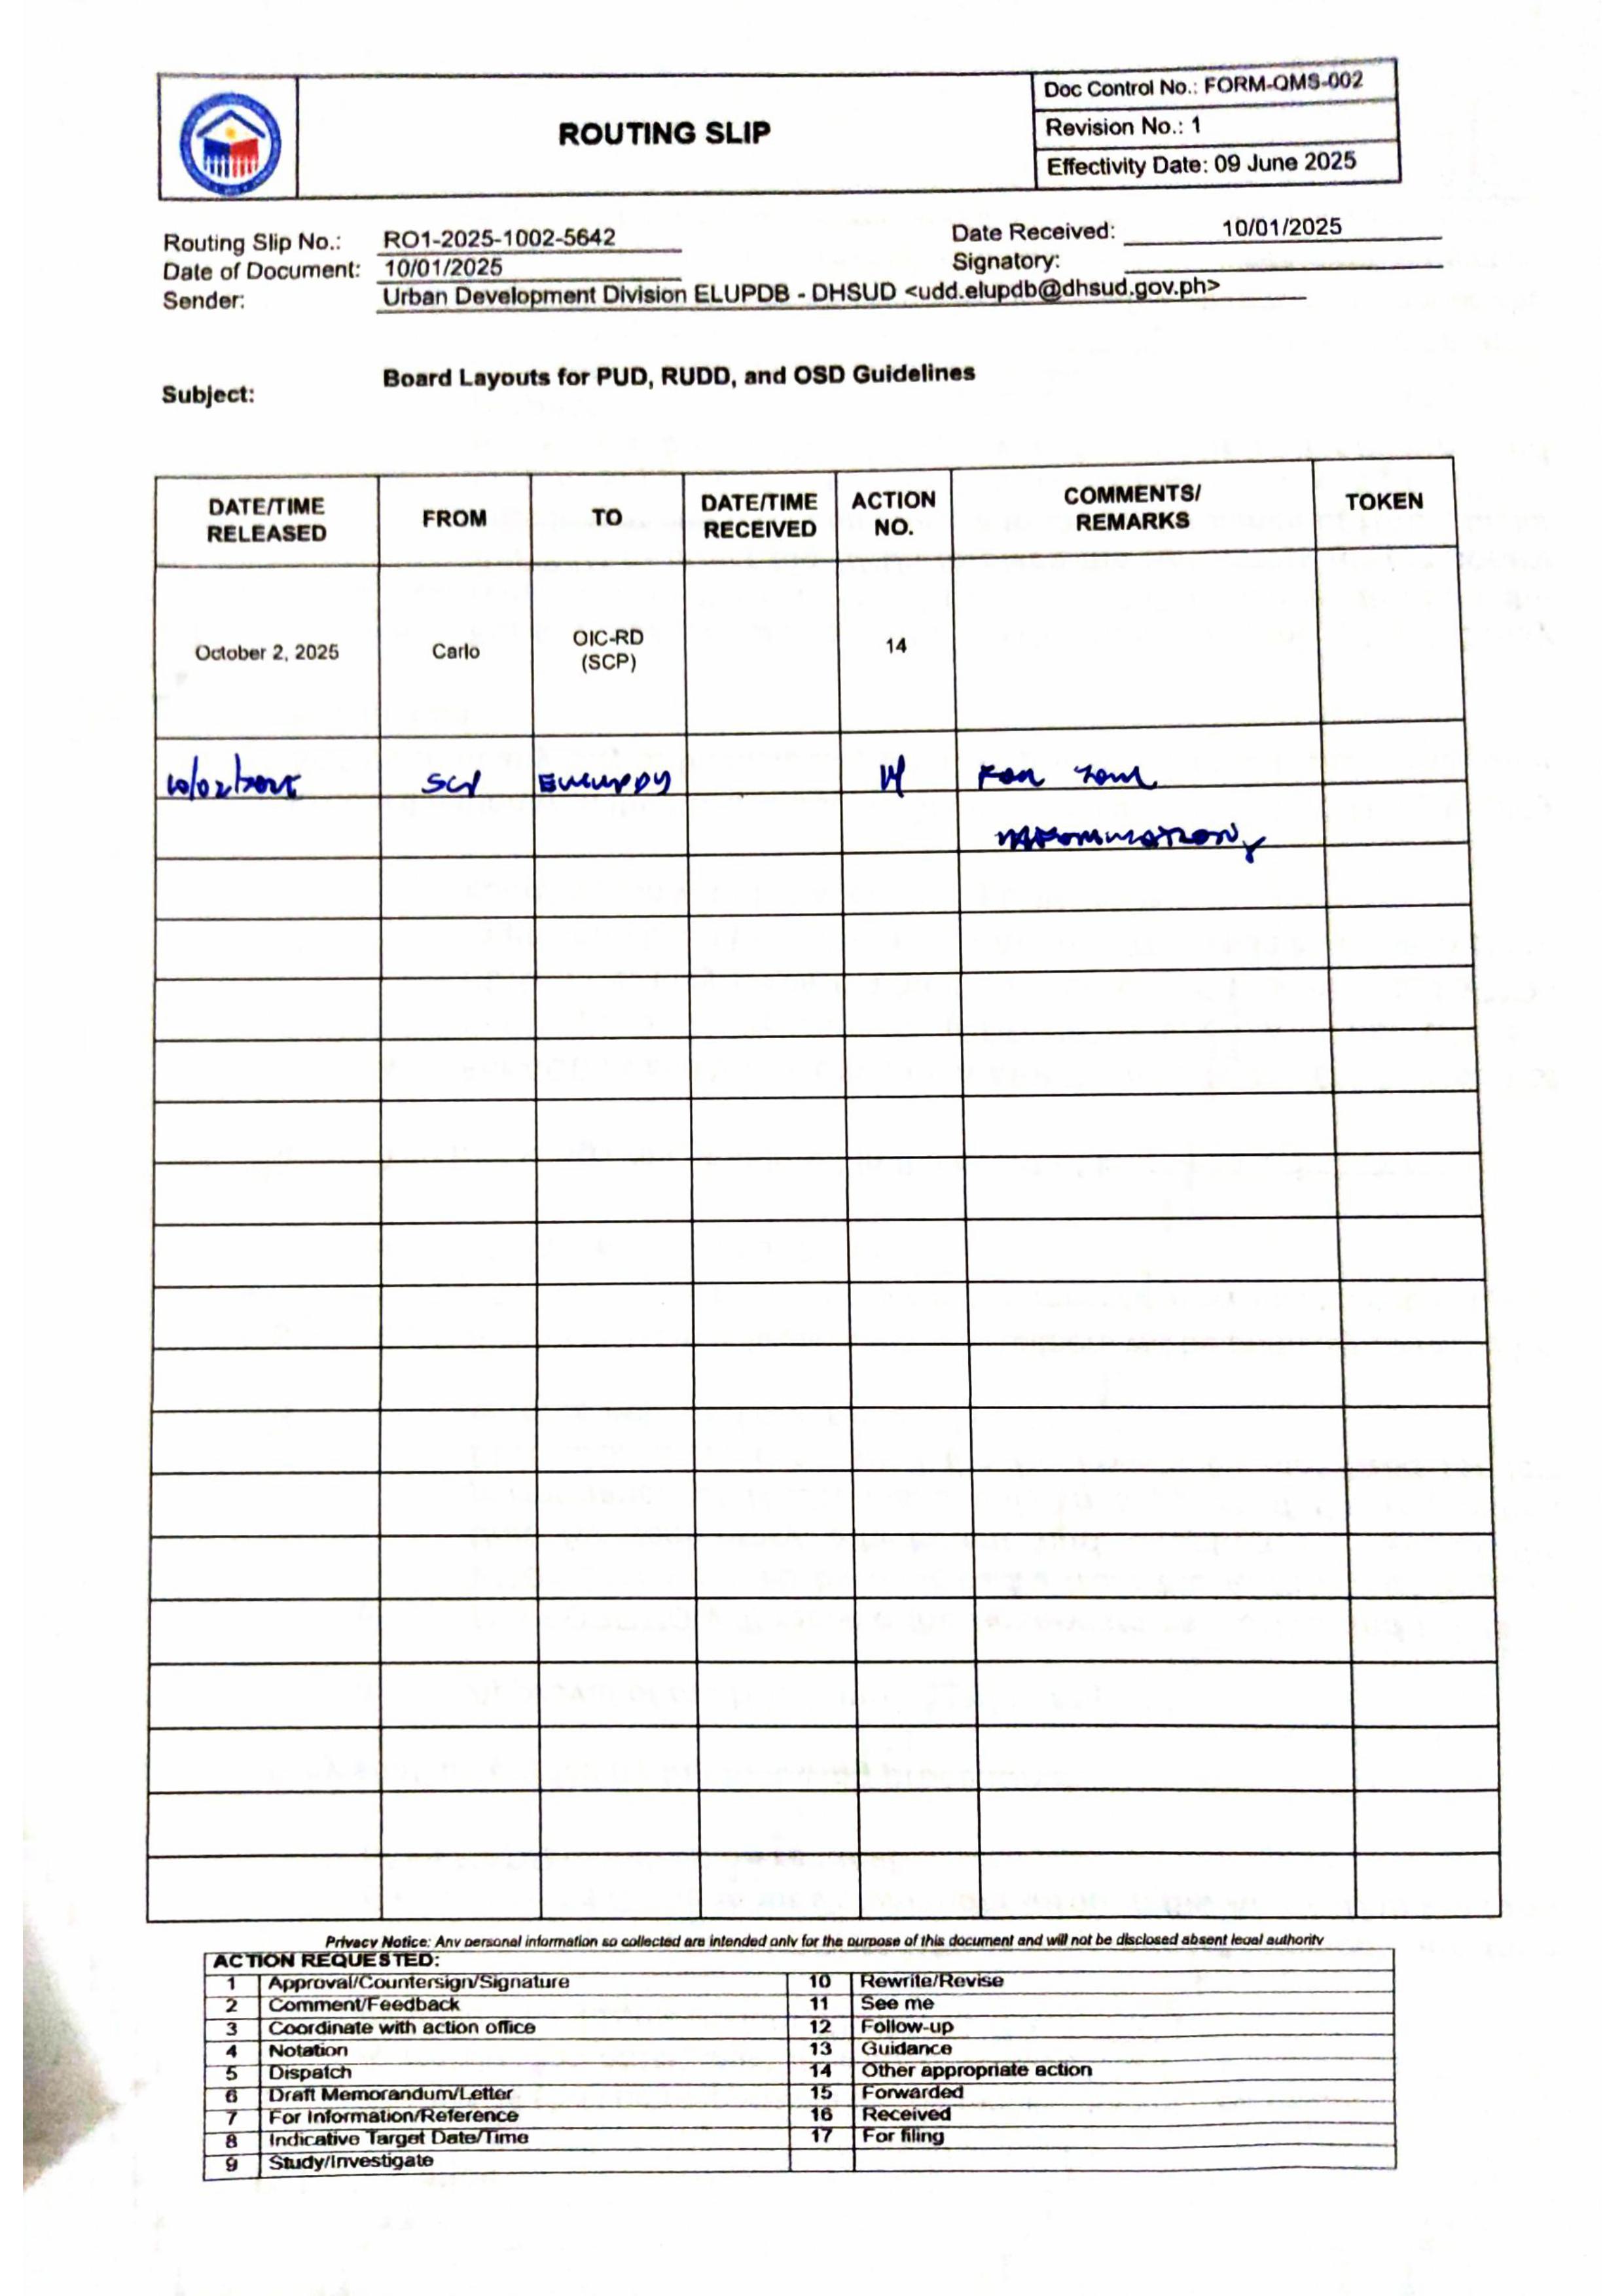 ROUTING SLIP
Doc Control No.: FORM-QMS-002
Revision No.: 1
Effectivity Date: 09 June 2025
Routing Slip No.: RO1-2025-1002-5642
Date Received: 10/01/2025
Date of Document: 10/01/2025
Signatory:
Sender: Urban Development Division ELUPDB - DHSUD <udd.elupdb@dhsud.gov.ph>
Subject: Board Layouts for PUD, RUDD, and OSD Guidelines
DATE/TIME RELEASED FROM TO DATE/TIME RECEIVED ACTION NO. COMMENTS/ REMARKS TOKEN
October 2, 2025 Carlo OIC-RD (SCP) 14
10/02/2025 SCP 14 FOR YOUR
INFORMATION
Privacy Notice: Any personal information so collected are intended only for the purpose of this document and will not be disclosed absent legal authority
ACTION REQUESTED:
1 Approval/Countersign/Signature 10 Rewrite/Revise
2 Comment/Feedback 11 See me
3 Coordinate with action office 12 Follow-up
4 Notation 13 Guidance
5 Dispatch 14 Other appropriate action
6 Draft Memorandum/Letter 15 Forwarded
7 For Information/Reference 16 Received
8 Indicative Target Date/Time 17 For filing
9 Study/Investigate